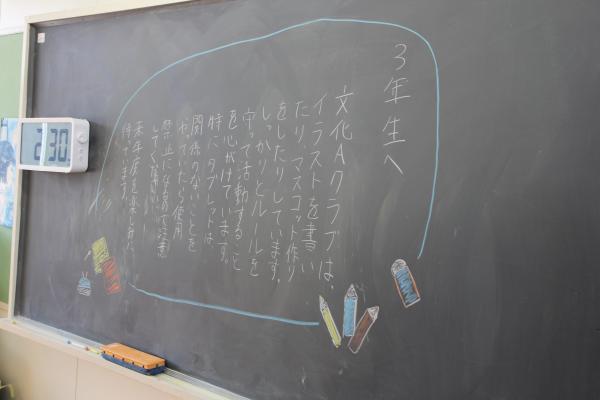 3年生へ
文化Aクラブは、
イラストを書い
たり、マスコット作り
をしたりしています。
しっかりとルールを
守って活動すること
を心がけています。
特に、タブレットは
関係のないことを
やっていたら使用
禁止になるので注意
してください。
来年度を楽しみに
待っています。
2:30